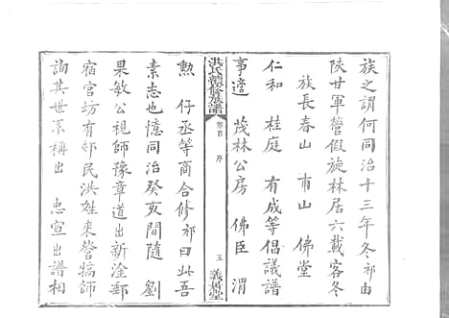 族之謂何同治十三年冬祁由
陝甘軍營假旋林居六載客冬
族長春山 甫山 佛堂
仁和 桂庭 有成等倡議譜
事適 茂林公房 佛臣 渭
洪氏續修族譜 卷首 序 五 義樹堂
勲 仔丞等商合修祁曰此吾
素志也憶同治癸亥間隨 劉
果敏公視師豫章道出新淦郵
宿官坊有邨民洪姓來營犒師
詢其世系稱出 忠宣出譜相